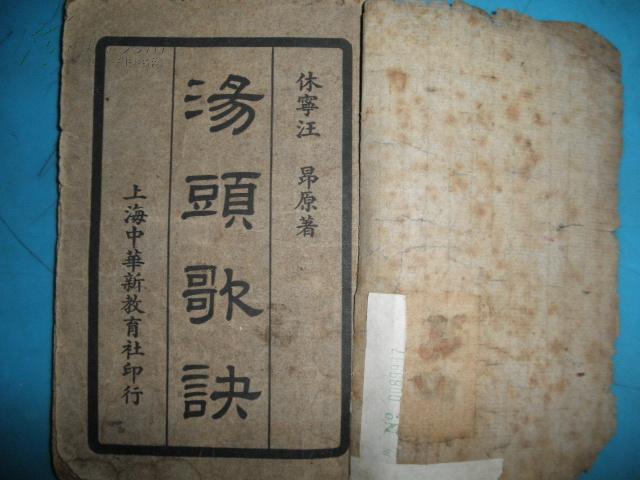 休寧汪 昂原著
湯頭歌訣
上海中華新教育社印行